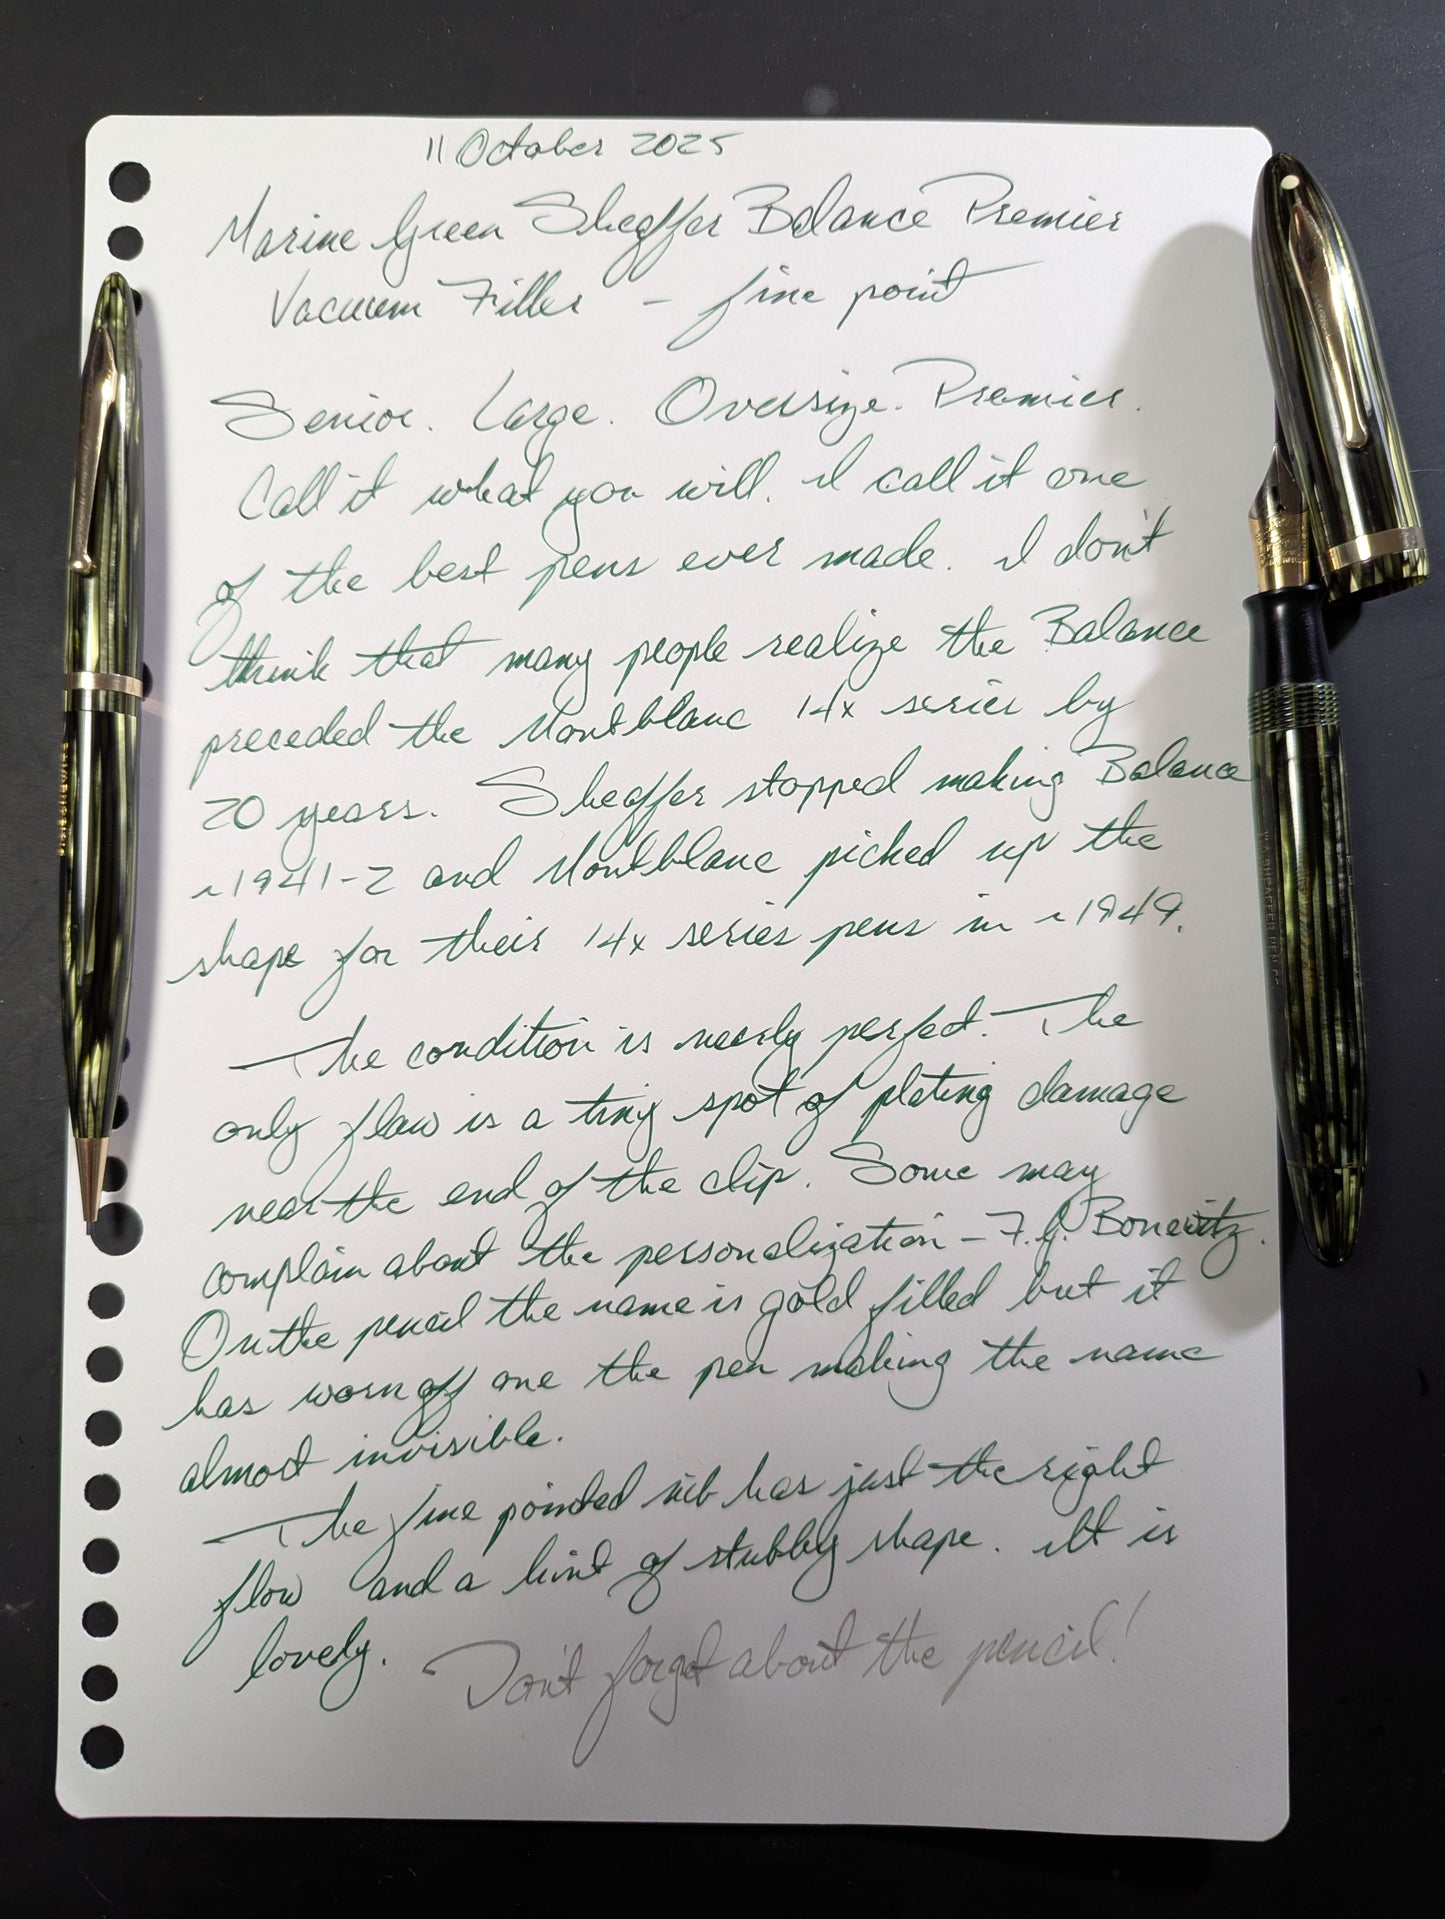 11 October 2025
Marine Green Sheaffer Balance Premier
Vacuum Filler - fine point
Senior. Large. Oversize. Premier.
Call it what you will. I call it one
of the best pens ever made. I don't
think that many people realize the Balance
preceded the Montblanc 14x series by
20 years. Sheaffer stopped making Balance
~1941-2 and Montblanc picked up the
shape for their 14x series pens in ~1949.
The condition is nearly perfect. The
only flaw is a tiny spot of plating damage
near the end of the clip. Some may
complain about the personalization - F.J. Bonewitz.
On the pencil the name is gold filled but it
has worn off one the pen making the name
almost invisible.
The fine pointed nib has just the right
flow and a hint of stubby shape. It is
lovely. Don't forget about the pencil!
W.A. SHEAFFER PEN CO